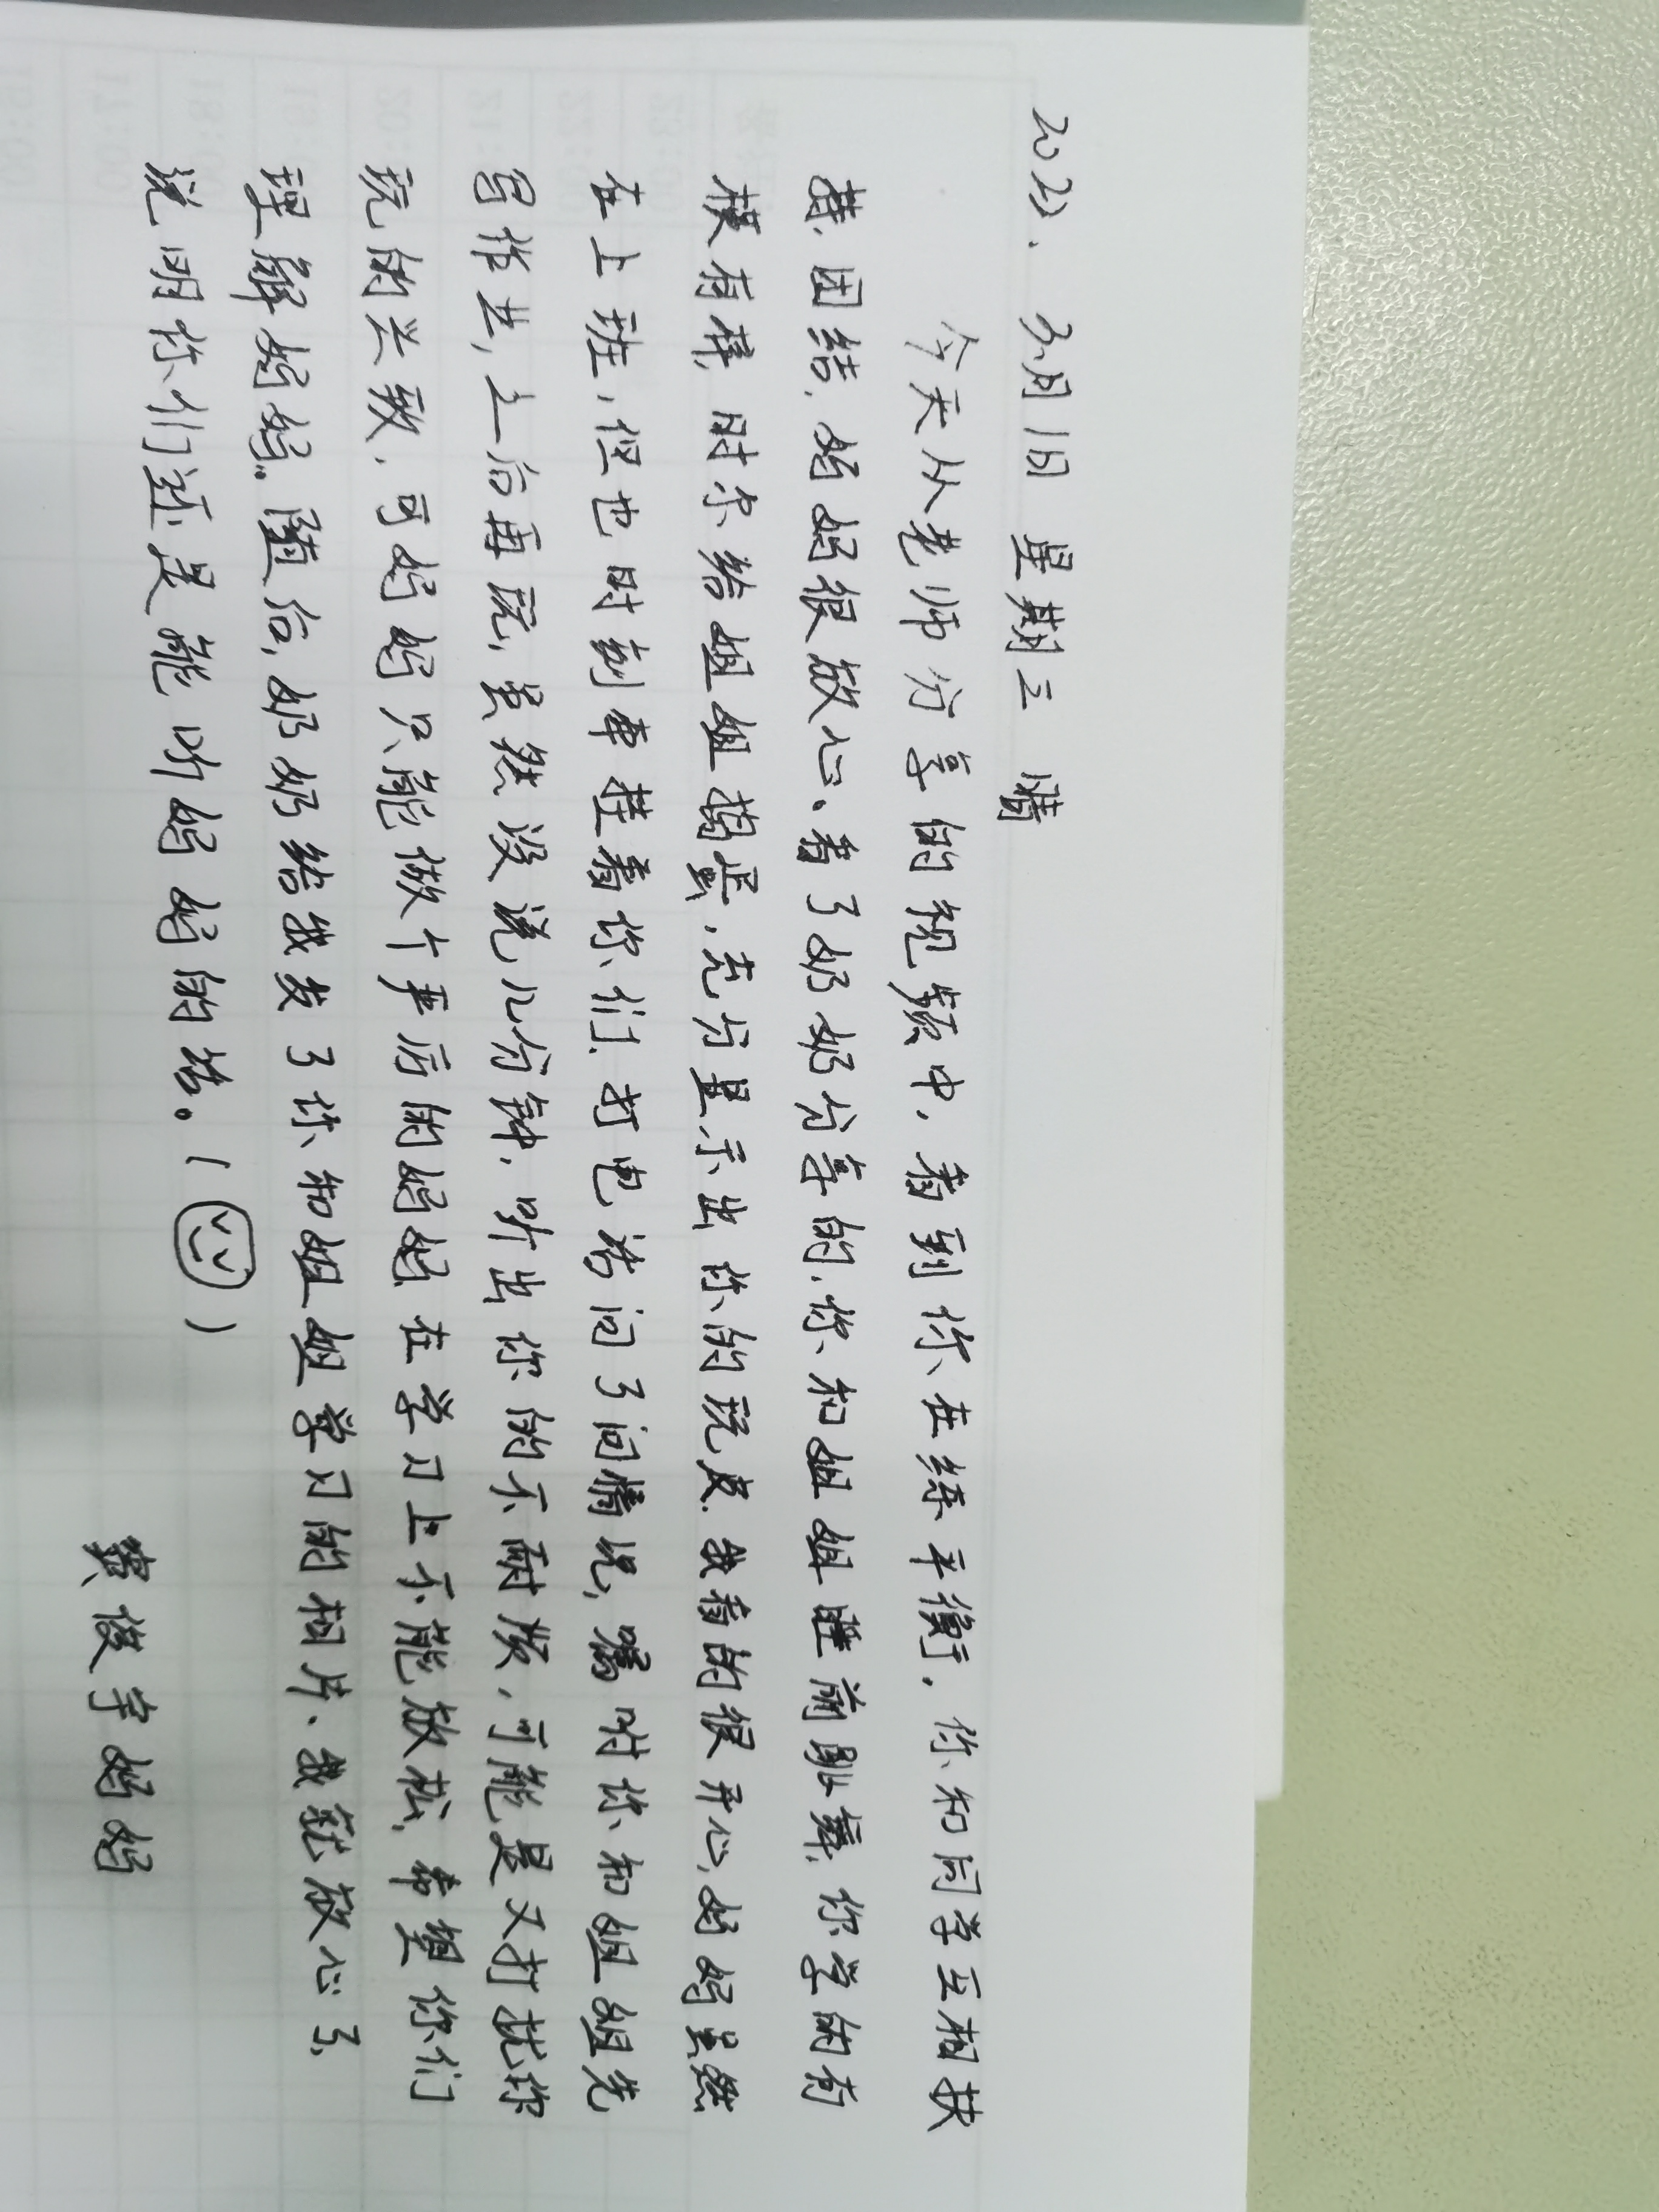 2022. 3月1日 星期二 晴
今天从老师分享的视频中,看到你在练平衡,你和同学互相扶
持、团结,妈妈很放心、看了奶奶分享的,你和姐姐睡前跳舞,你学的有
模有样,时不尔给姐姐捣蛋,充分显示出你的玩皮.我看的很开心,妈妈虽然
在上班,但也时刻牵挂着你们、打电话问了问情况,嘱咐你和姐姐先
写作业,之后再玩,虽然没说几分钟,听出你的不耐烦,可能是又打扰你
玩的兴致,可妈妈只能做个事后的妈妈,在学习上不能放松,希望你们
理解妈妈。随后,奶奶给我发了你和姐姐学习的相片、我就放心了,
说明你们还是能听妈妈的话。( )
黄俊宇妈妈